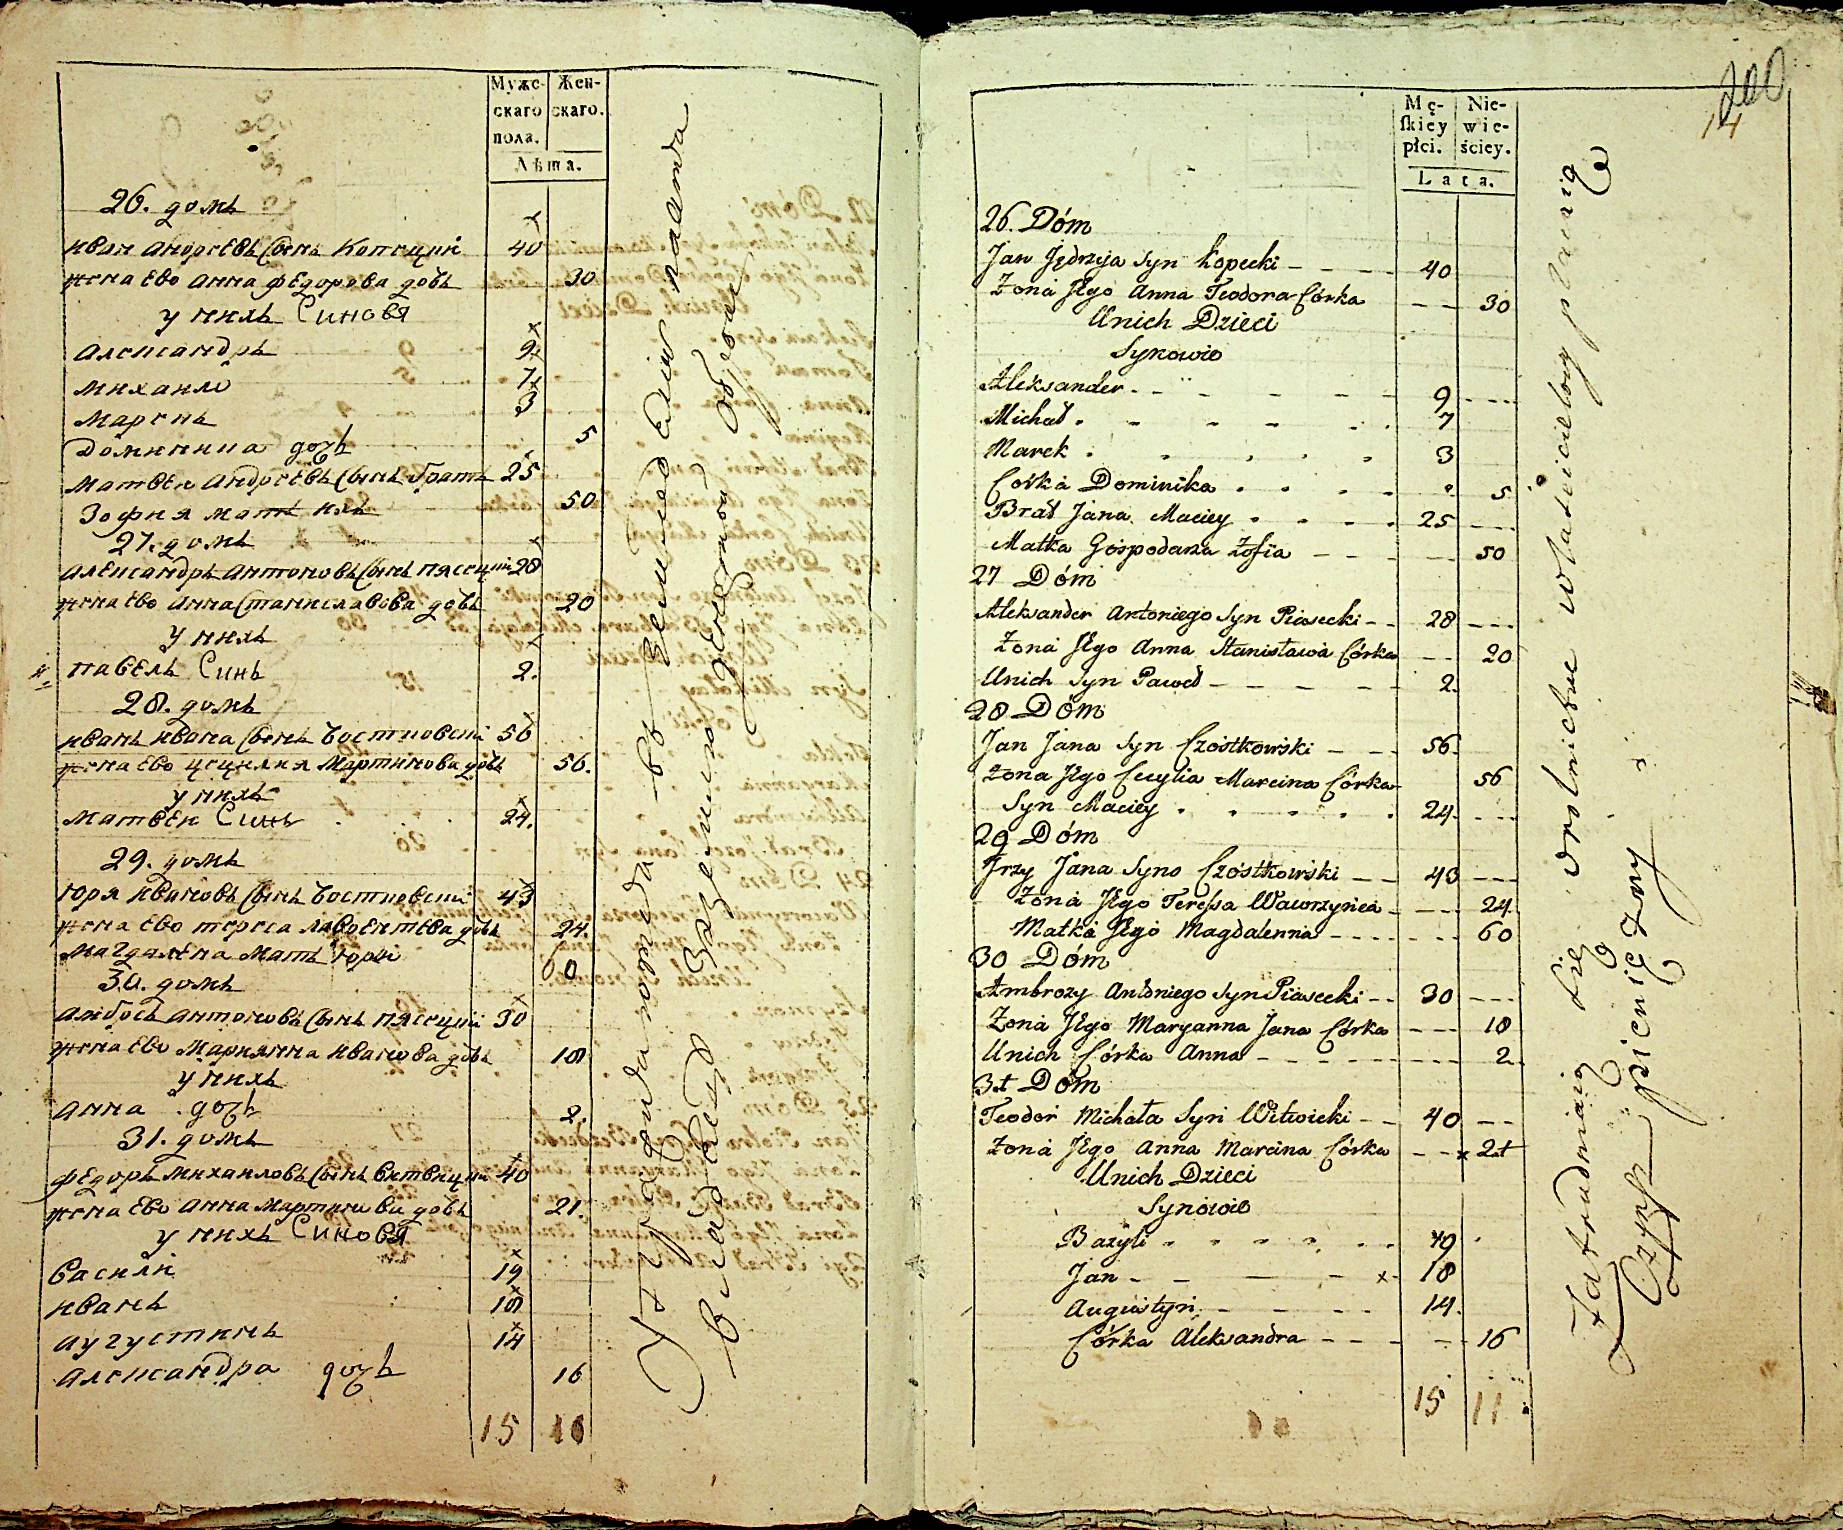 Мужс-
скаго
пола.
Жен-
скаго.
Лѣта.
26. домъ
Иван Андреевъ Сынъ Копецкий 40
жена Ево Анна Федорова дочь 30
у нихъ Синовя
Александръ 9
Михаило 7
Маркъ 3
Доминика дочь 5
Матвей Андреевъ Сынъ братъ 25
Зофия мать ихъ 50
27. домъ
Александръ Антоновъ Сынъ Пясецкий 28
жена Ево Анна Станиславова дочь 20
у нихъ
Павелъ Синъ 2.
28. домъ
Иванъ Ивана Сынъ Чостковски 56
жена Ево Цецилия Мартинова дочь 56.
у нихъ
Матвей Синъ 24.
29. домъ
Юря Ивановъ Сынъ Чостковски 43
жена Ево Тереса Лаврентева дочь 24.
Магдалена Мать Юри 60
30. домъ
Амбось Антоновъ Сынъ Пясецки 30
жена Ево Мариянна Иванова дочь 18
у нихъ
Анна дочь 2.
31. домъ
Федоръ Михаиловъ Сынъ Витвицки 40
жена Ево Анна Мартинова дочь 21.
у нихъ Синовя
Василй 19
Иванъ 18
Аугустинъ 14
Александра дочь 16
15
земледелии
владельцу за землю денежной оброк
200
14
Mę-
ſkiey
płci.
Nie-
wie-
ściey.
Lata.
26. Dóm
Jan Jędrzja Syn Kopecki - - - - 40
Żona Jego Anna Teodora Córka - - 30
Unich Dzieci
Synowie
Aleksander - - - - - - 9 - - -
Michał - - - - - 7
Marek - - - - - 3
Corka Dominika - - - - 5
Brat Jana Maciey - - - - 25 - - -
Matka Gospodarza Zofia - - - - 50
27 Dóm
Aleksander Antoniego Syn Piasecki - - 28 - - -
Żona Jego Anna Stanisława Córka - - 20
Unich Syn Paweł - - - - - 2.
28 Dóm
Jan Jana Syn Czostkowski - - - 56.
Żona Jego Cecylia Marcina Córka 56
Syn Maciey - - - - - 24. - - -
29 Dóm
Jrzy Jana Syno Czostkowski - - 43 - - -
Żona Jego Teressa Wawrzyńca - - - - 24.
Matka Jego Magdalenna - - - - - - 60
30 Dóm
Ambrozy Antoniego Syn Piasecki - - 30 - - -
Żona Jego Maryanna Jana Córka - - - 18
Unich Córka Anna - - - - - - - - 2.
31 Dóm
Teodor Michała Syn Witwicki - - 40 - - -
Żona Jego Anna Marcina Córka - - x 21
Unich Dzieci
Synowie
Bazyli - - - - - - 19
Jan - - - - x - 18
Augustyn - - - - 14.
Córka Aleksandra - - - - - 16
15 11
Zatrudniaią się w rolnictwie właścicielowy płacią
Czynsz pieniężny